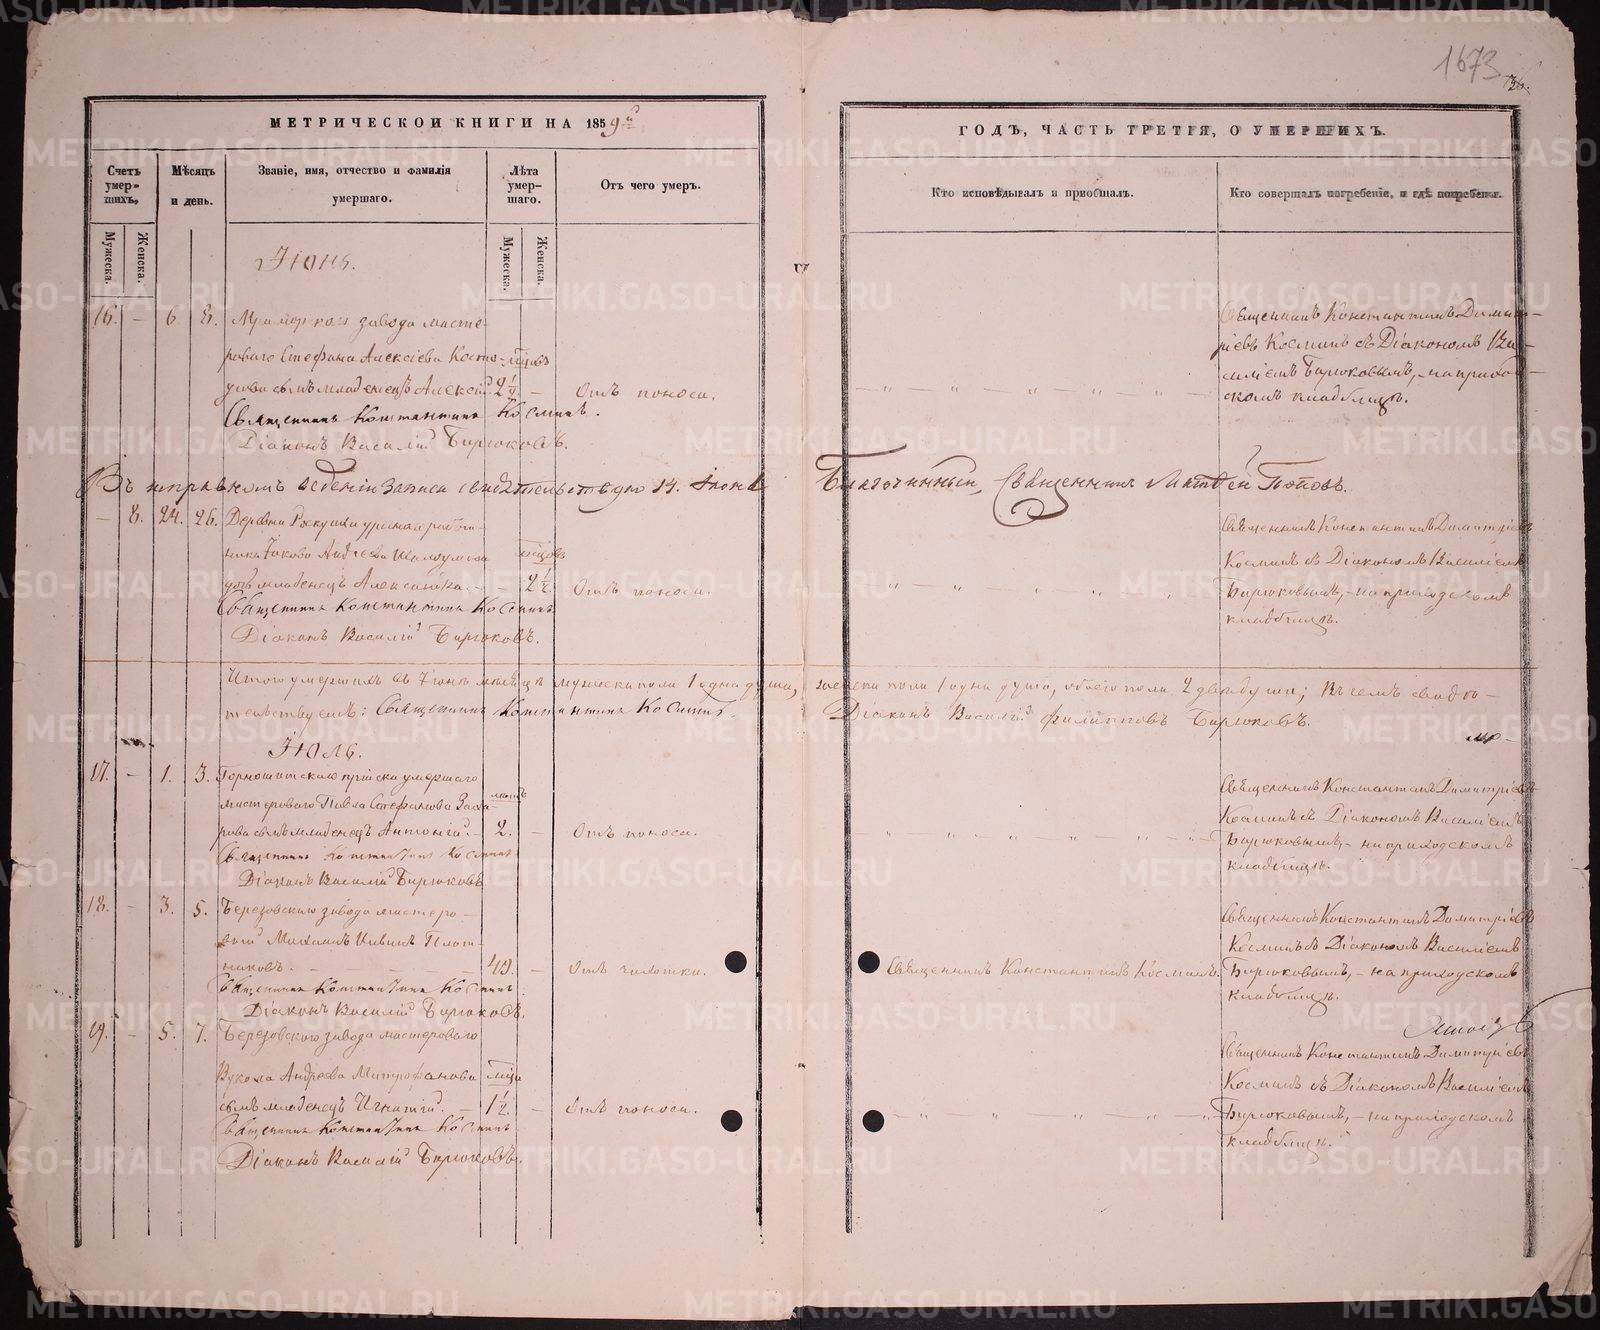 1673
МЕТРИЧЕСКОЙ КНИГИ НА 1859й
ГОДЪ, ЧАСТЬ ТРЕТІЯ, О УМЕРШИХЪ.
Счетъ умер-шихъ.
Мѣсяцъ и день.
Званіе, имя, отчество и фамилія умершаго.
Лѣта умер-шаго.
Отъ чего умеръ.
Кто исповѣдывалъ и пріобщалъ.
Кто совершалъ погребеніе, и гдѣ погребены.
Мужеска.
Женска.
Мужеска.
Женска.
Іюнь.
16. – 6 8. Мраморскаго завода масте-
роваго Стефана Алексіева Косто-
усова сынъ младенецъ Алексій 2 1/4 – Отъ поноса.
Священникъ Константинъ Космин.
Діаконъ Василій Бирюковъ.
Священникъ Константинъ Димит-
ріевъ Косминъ съ Діакономъ Васи-
ліемъ Бирюковымъ, – на приход-
скомъ кладбищѣ.
Въ исправномъ веденіи записи свидѣтельствую 14. Іюня Благочинный, Священникъ Матвей Поповъ.
– 8. 24. 26. Деревни
Іакова Андреева
дочь младенецъ Александра. – 2 1/2. Отъ поноса.
Священникъ Константинъ Косминъ
Діаконъ Василій Бирюковъ.
Священникъ Константинъ Димитріевъ
Косминъ съ Діакономъ Василіемъ
Бирюковымъ, – на приходскомъ
кладбищѣ.
Итого умершихъ въ Іюнѣ мѣсяцѣ мужеска пола 1 одна душа, женска пола 1 одна душа, обоего пола 2 двѣ души; въ чемъ свидѣ-
тельствуемъ: Священникъ Константинъ Косминъ. Діаконъ Василій Филипповъ Бирюковъ.
Іюль.
17. – 1. 3. Горнощитскаго пріиска умершаго
мастероваго Павла Стефанова Заха-
рова сынъ младенецъ Антоній. – 2. – Отъ поноса.
Священникъ Константинъ Косминъ
Діаконъ Василій Бирюковъ.
Священникъ Константинъ Димитріевъ
Косминъ съ Діакономъ Василіемъ
Бирюковымъ, – на приходскомъ
кладбищѣ.
18. – 3. 5. Березовскаго завода мастеро-
вой Михаилъ Плот-
никовъ. 49. – Отъ чахотки.
Священникъ Константинъ Косминъ
Діаконъ Василій Бирюковъ.
Священникъ Константинъ Косминъ.
Священникъ Константинъ Димитріевъ
Косминъ съ Діакономъ Василіемъ
Бирюковымъ, – на приходскомъ
кладбищѣ.
19. – 5. 7. Березовскаго завода мастероваго
Вукола Андреева Митрофанова
сынъ младенецъ Игнатій. – 1 1/2. – Отъ поноса.
Священникъ Константинъ Косминъ
Діаконъ Василій Бирюковъ.
Священникъ Константинъ Димитріевъ
Косминъ съ Діакономъ Василіемъ
Бирюковымъ, – на приходскомъ
кладбищѣ.
METRIKI.GASO-URAL.RU